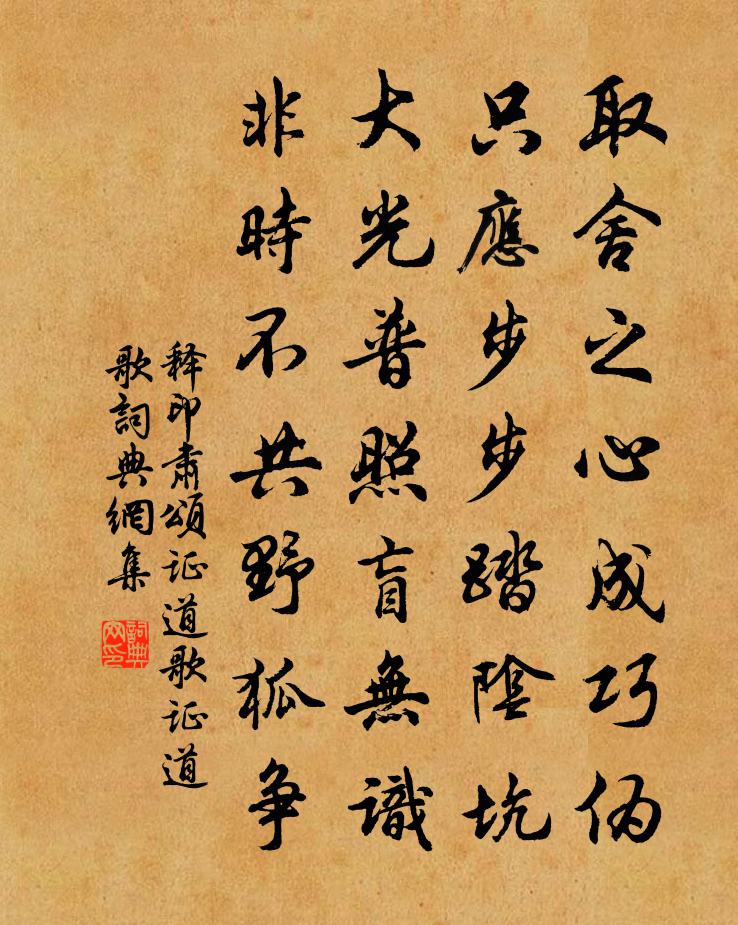 取舍之心成巧伪
只應步步踏陰坑
大光普照盲無識
非時不共野狐争
释印肅頌证道歌证道
歌詞典網集
詞典
网印